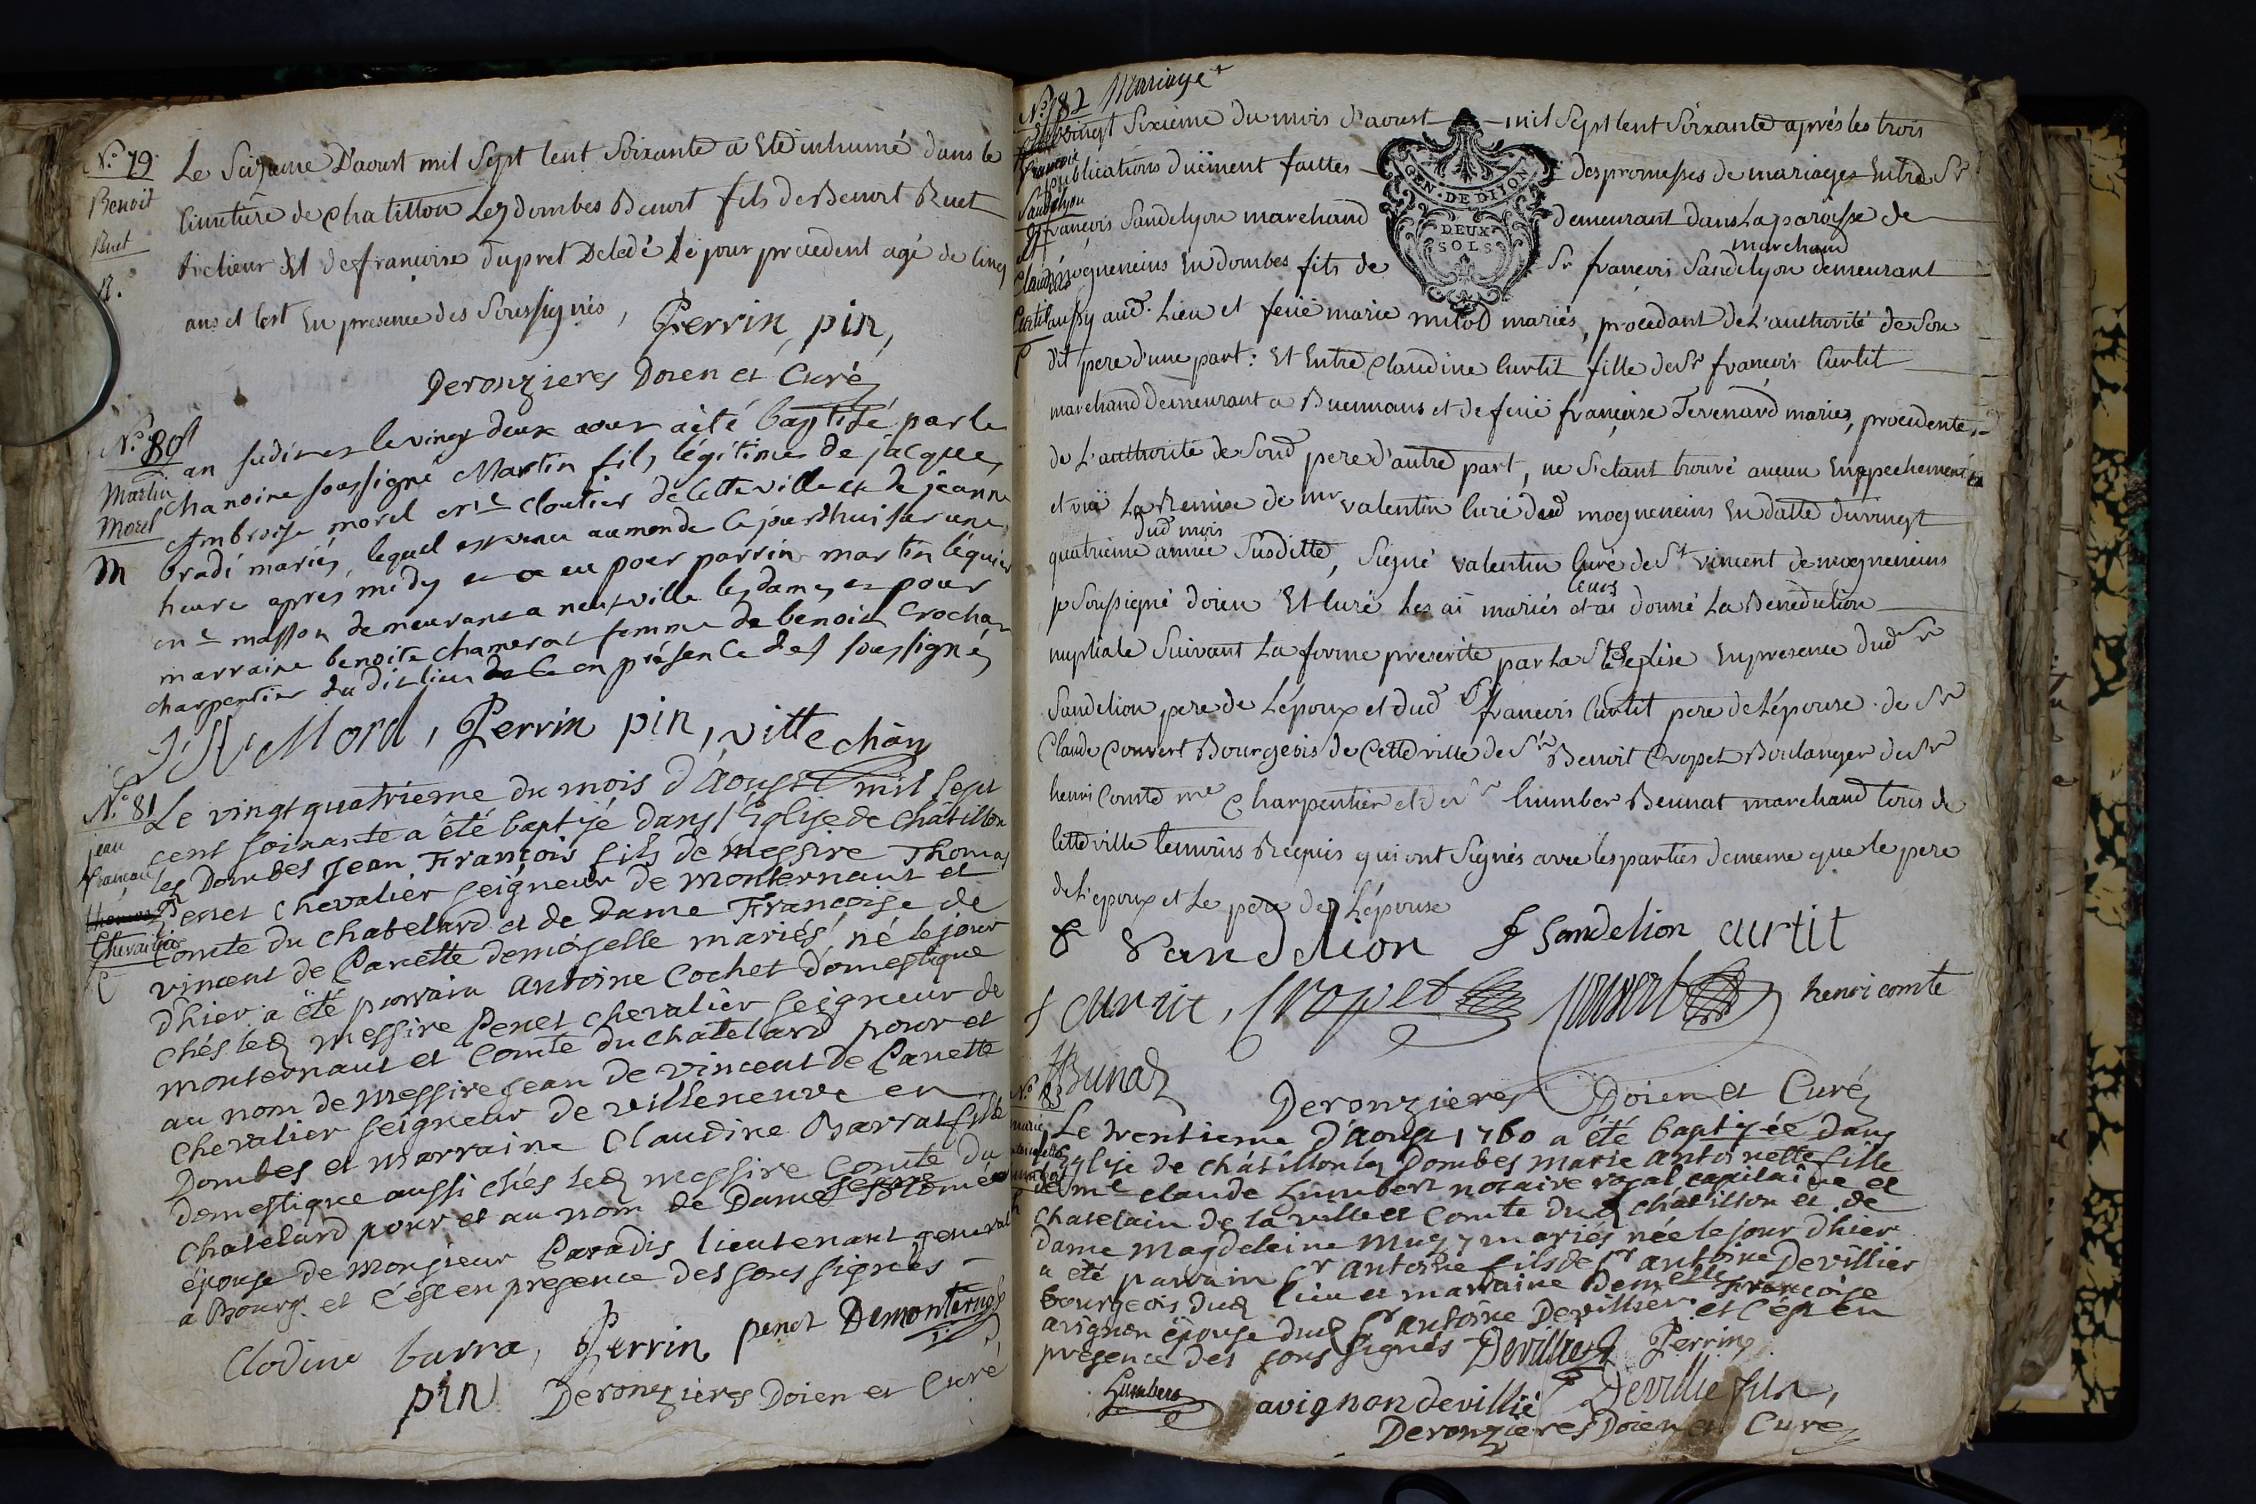 N.° 79.
Benoit
Buet
R.
Le Seizieme D'aoust mil Sept Cent Soixante a Eté inhumé dans le
Cimetiere de chatillon Lez dombes Benoit fils de Benoit Buet
et de françoise dupret Decedé Le jour precedent agé de Cinq
ans et c'est En presence des Soussignés, Perrin, pin,
Deronzieres Doien et Curé
N.° 80
Martin
Morel
M
an sudit et le vingt deux aout a été baptisé par le
chanoine soussigné Martin fils légitime de jacques
Ambroise morel m.e cloutier de cette ville et de jeanne
bradi mariés, lequel est venu au monde ce jourdhui sur une
heure apres midy et a eu pour parrin martin léquier
m.e masson demeurant a neufville les dames et pour
marraine benoite chamerat femme de benoit Crochan
charpentier du dit lieu en présence des soussignés
Morel, Perrin pin, vitte chan
N.° 81
jean
francois
thomas
C
Le vingt quatrieme du mois d'Aoust mil sept
cent soixante a été baptisé dans l'Eglise de châtillon
les Dombes Jean François fils de Messire Thomas
Penet chevalier seigneur de monternaut et
Comte du chatelard et de Dame Françoise de
vincent de Panette demoiselle mariés, né le jour
d'hier a été parrain Antoine Cochet domestique
chés led messire Penet chevalier seigneur de
monternaut et Comte du chatelard pour et
au nom de Messire Jean de vincent de Panette
chevalier seigneur de villeneuve en
Dombes et marraine Claudine Barrat fille
domestique aussi chés led messire Comte du
chatelard pour et au nom de Dame
épouse de monsieur Paradis lieutenant general
a Bourg et c'est en presence des sous signés
Clodine barra, Perrin penet Demonternost
pin Deronzieres Doien et Curé
N.° 82 Mariage
françois
Sandelyon
et
Claudine
Curtil
C
GEN. DE DIJON
DEUX
SOLS
vingt Sixieme du mois d'aoust mil Sept Cent Soixante aprés les trois
publications duëment faittes des promesses de mariage Entre Sr
françois Sandelyon marchand demeurant dans La paroisse de
marchand
mogneneins En dombes fils de Sr françois Sandelyon demeurant
aussy aud. Lieu et feüe marie mariés, procedant de L'authorité de Son
dit pere d'une part: Et Entre Claudine Curtil fille de Sr françois Curtil
marchand demeurant a Buennans et de feüe françoise Tevenard mariés, procedente
de L'authorité de Sond pere d'autre part, ne S'etant trouvé aucun Empechement
et vû La Remise de mr valentin Curé dud mogneneins En datte du vingt
dud mois
quatrieme année Susditte, Signé valentin Curé de St vincent de mogneneins
leurs
je Soussigné doien Et Curé Les ai mariés et ai donné La Benediction
nuptiale Suivant La forme prescrite par La Ste Eglise En presence dud Sr
Sandelion pere de L'époux et dud Sr françois Curtil pere de L'épouse. de Sr
Claude Couvert Bourgeois de Cette ville de Sr Benoit Cropet Boulanger de Sr
henri Comte me Charpentier et de Sr humber Bunnat marchand tous de
Cette ville temoins Requis qui ont Signés avec les parties de meme que le pere
de l'epoux et Le pere de L'épouse
Sandelion f Sandelion curtil
f curtil, Cropet Couvert henri comte
HBunad Deronzieres Doien et Curé
N.° 83
Le trentieme d'Aoust 1760 a été baptisée dans
l'Eglise de châtillon les Dombes marie antoinette fille
de me claude Humbert notaire royal capitaine et
chatelain de la ville et Comté dud chatillon et de
Dame Magdeleine mariés née le jour d'hier
a été parrain Sr antoine fils de Sr antoine Devillier
bourgeois dud lieu et marraine Demelle Françoise
avignon épouse dud Sr antoine Devillier et c'est en
presence des sous signés Devillie Perrin
Humbert avignon devillié Devillie fils,
Deronzieres Doien et Curé